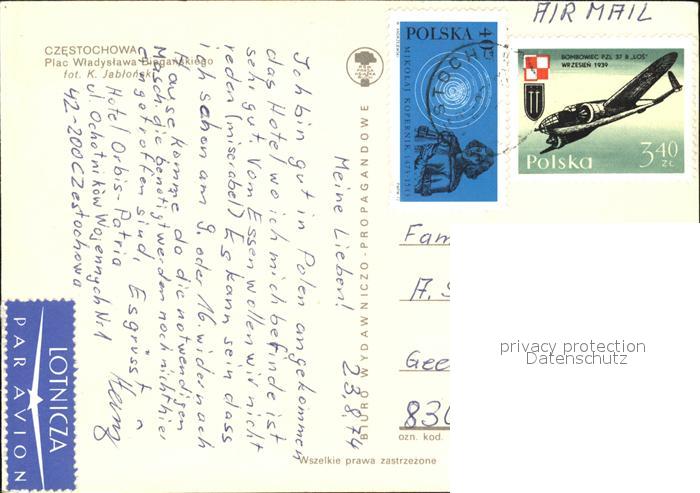 AIR MAIL
CZĘSTOCHOWA
Plac Władysława Biegańskiego
fot. K. Jabłoński
POLSKA 40
MIKOŁAJ KOPERNIK 1473-1543
BOMBOWIEC PZL 37 B „ŁOŚ”
WRZESIEŃ 1939
Polska
3,40
ZŁ
BIURO WYDAWNICZO-PROPAGANDOWE
23.8.74
Meine Lieben!
Ich bin gut in Polen angekommen
das Hotel wo ich mich befinde ist
sehr gut. Vom Essen wollen wir nicht
reden (miserabel) Es kann sein dass
ich schon am 9. oder 16. wider nach
Hause komme da die notwendigen
Masch. die benötigt werden noch nicht hier
eingetroffen sind. Es grüsst
Hotel Orbis-Patria
ul. Ochotników Wojennych Nr 1
42-200 Czestochowa
Fam
A. S
Gee
830
ozn. kod.
Wszelkie prawa zastrzeżone
LOTNICZA
PAR AVION
privacy protection
Datenschutz